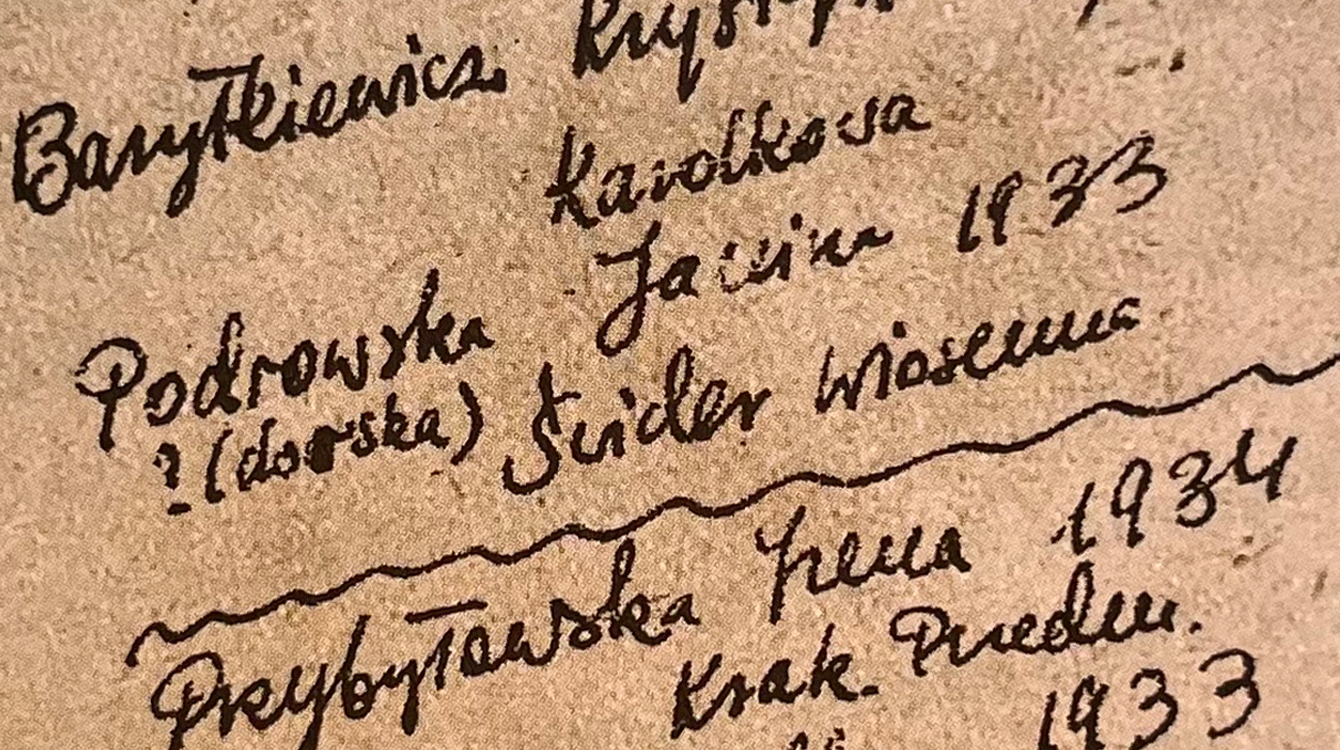 Baryłkiewicz Krystyna
Karolkowa
Podrowska Janina 1933
? (dorska) Świder Wiosenna
Przybyłowska Irena 1934
Krak. Przedm.
1933